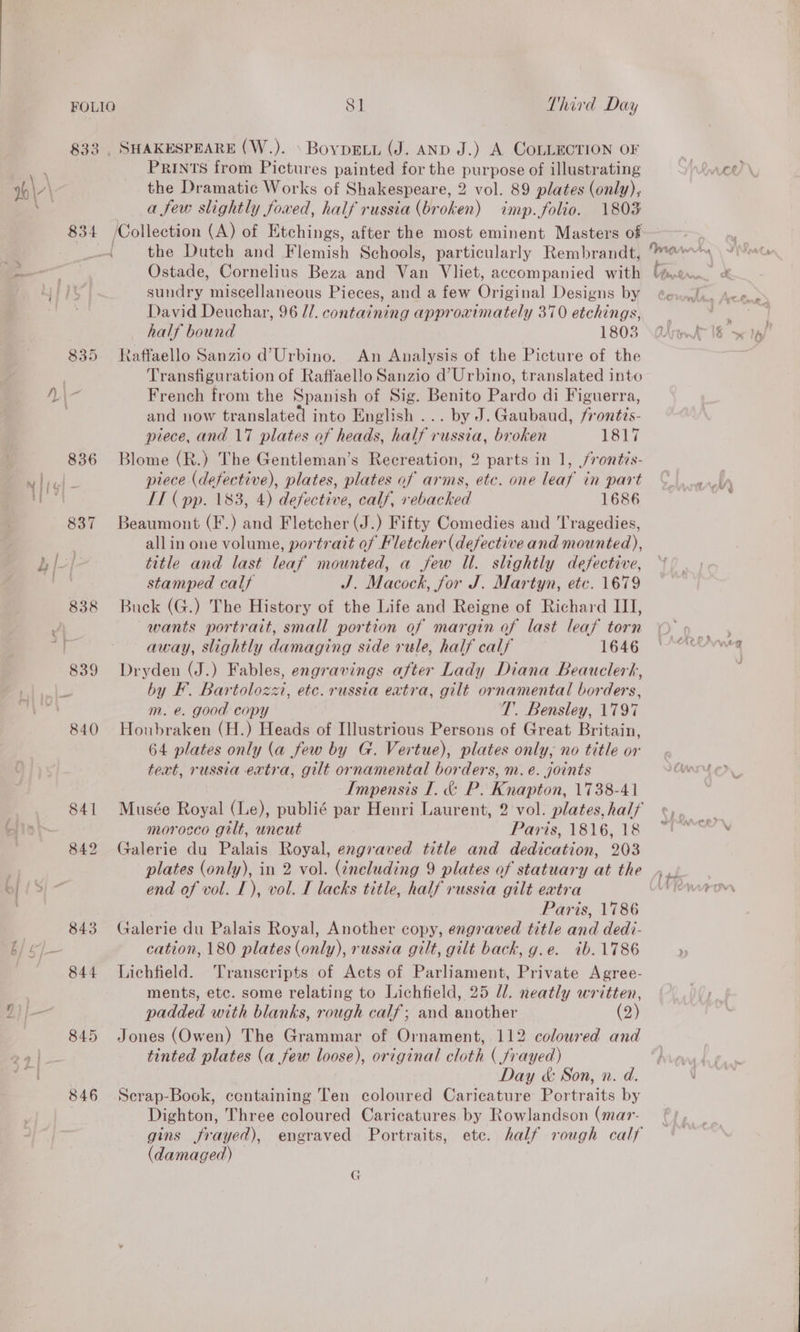 FOLIO 81 Third Day
833 SHAKESPEARE (W.). BOYDELL (J. AND J.) A COLLECTION OF
PRINTS from Pictures painted for the purpose of illustrating
the Dramatic Works of Shakespeare, 2 vol. 89 plates (only),
a few slightly foxed, half russia (broken) imp. folio. 1803
834 Collection (A) of Etchings, after the most eminent Masters of
the Dutch and Flemish Schools, particularly Rembrandt,
Ostade, Cornelius Beza and Van Vliet, accompanied with
sundry miscellaneous Pieces, and a few Original Designs by
David Deuchar, 96 ll. containing approximately 370 etchings,
half bound 1803
835 Raffaello Sanzio d'Urbino. An Analysis of the Picture of the
Transfiguration of Raffaello Sanzio d'Urbino, translated into
French from the Spanish of Sig. Benito Pardo di Figuerra,
and now translated into English ... by J. Gaubaud, frontis-
piece, and 17 plates of heads, half russia, broken 1817
836 Blome (R.) The Gentleman's Recreation, 2 parts in 1, frontis-
piece (defective), plates, plates of arms, etc. one leaf in part
II (pp. 183, 4) defective, calf, rebacked 1686
837 Beaumont (F.) and Fletcher (J.) Fifty Comedies and Tragedies,
all in one volume, portrait of Fletcher (defective and mounted),
title and last leaf mounted, a few ll. slightly defective,
stamped calf J. Macock, for J. Martyn, etc. 1679
838 Buck (G.) The History of the Life and Reigne of Richard III,
wants portrait, small portion of margin of last leaf torn
away, slightly damaging side rule, half calf 1646
839 Dryden (J.) Fables, engravings after Lady Diana Beauclerk,
by F. Bartolozzi, etc. russia extra, gilt ornamental borders,
m. e. good copy T. Bensley, 1797
840 Houbraken (H.) Heads of Illustrious Persons of Great Britain,
64 plates only (a few by G. Vertue), plates only, no title or
text, russia extra, gilt ornamental borders, m. e. joints
Impensis I. & P. Knapton, 1738-41
841 Musée Royal (Le), publié par Henri Laurent, 2 vol. plates, half
morocco gilt, uncut Paris, 1816, 18
842 Galerie du Palais Royal, engraved title and dedication, 203
plates (only), in 2 vol. (including 9 plates of statuary at the
end of vol. I), vol. I lacks title, half russia gilt extra
Paris, 1786
843 Galerie du Palais Royal, Another copy, engraved title and dedi-
cation, 180 plates (only), russia gilt, gilt back, g.e. ib. 1786
844 Lichfield. Transcripts of Acts of Parliament, Private Agree-
ments, etc. some relating to Lichfield, 25 ll. neatly written,
padded with blanks, rough calf; and another (2)
845 Jones (Owen) The Grammar of Ornament, 112 coloured and
tinted plates (a few loose), original cloth (frayed)
Day & Son, n. d.
846 Scrap-Book, containing Ten coloured Caricature Portraits by
Dighton, Three coloured Caricatures by Rowlandson (mar-
gins frayed), engraved Portraits, etc. half rough calf
(damaged)
G